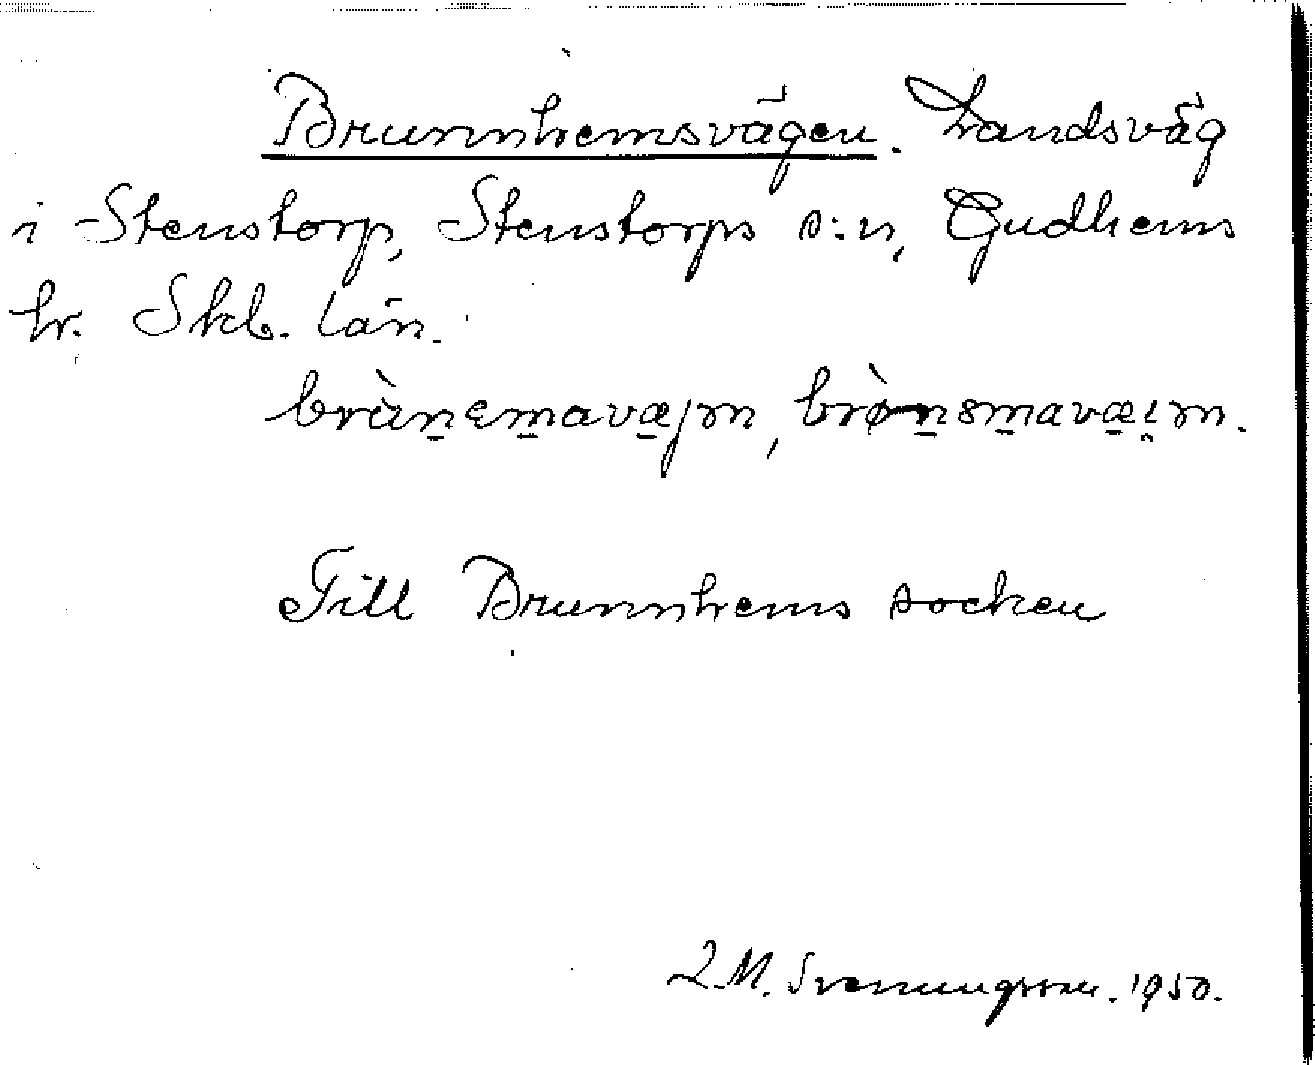 Brunnhemsvägen. Landsväg
i Stenstorp, Stenstorps s:n, Gudhems
hr. Skb. län.
brùn̲ɛm̲avæ̲jən, brøn̲sm̲avæ̲i̯ən.
Till Brunnhems socken
L M. Svenungsson. 1950.